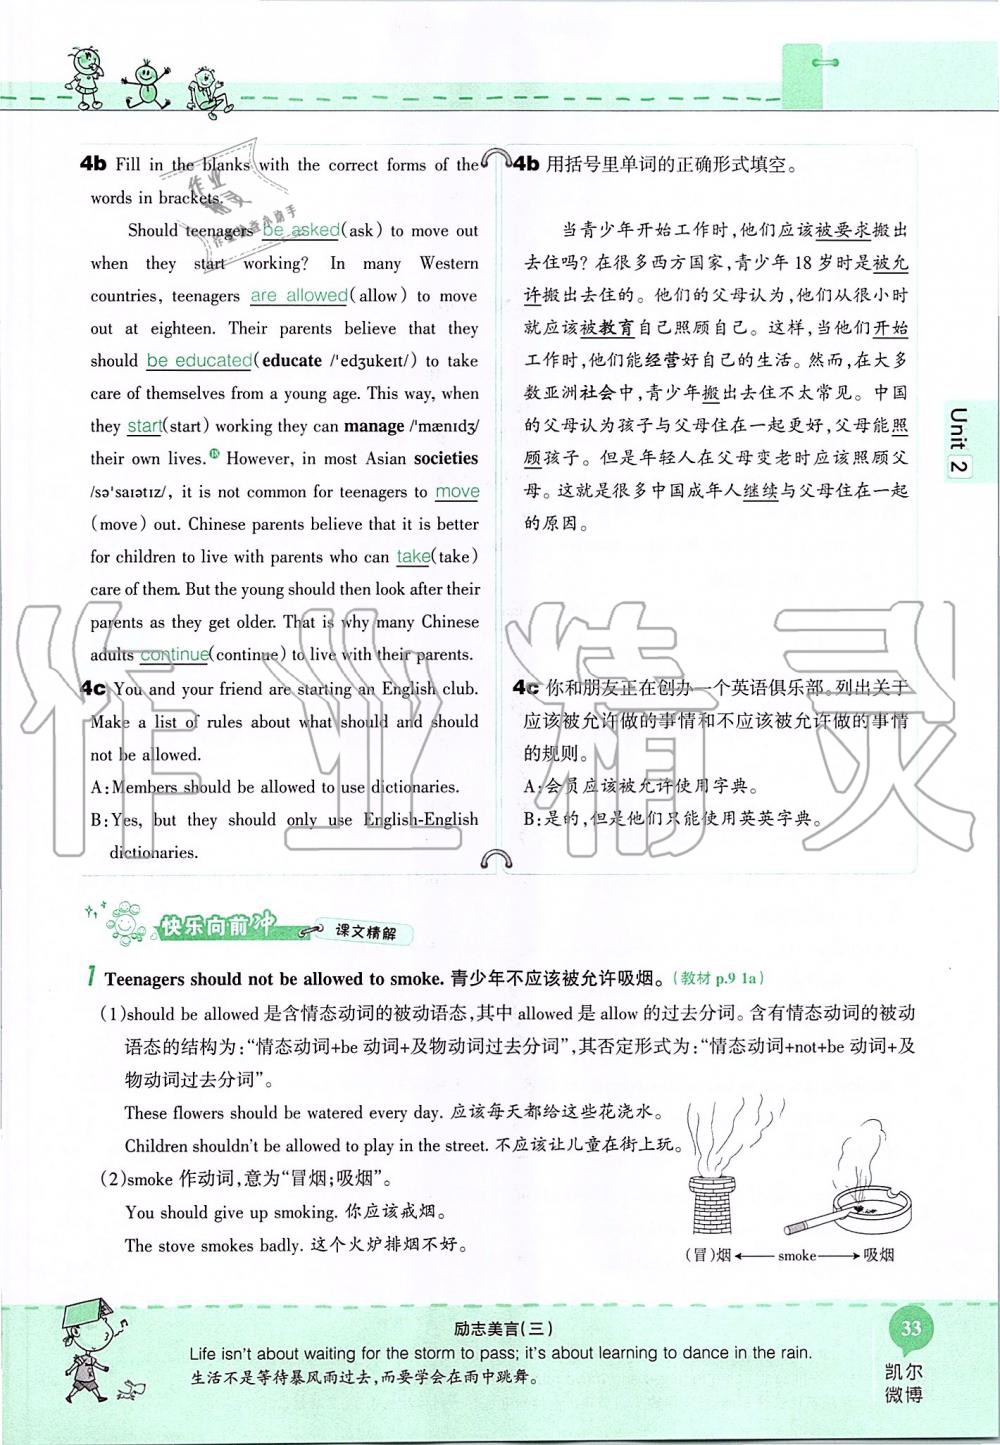 4b Fill in the blanks with the correct forms of the
words in brackets.
Should teenagers be asked(ask) to move out
when they start working? In many Western
countries, teenagers are allowed(allow) to move
out at eighteen. Their parents believe that they
should be educated(educate /'edʒukeɪt/) to take
care of themselves from a young age. This way, when
they start(start) working they can manage /'mænɪdʒ/
their own lives. However, in most Asian societies
/sə'saɪətɪz/, it is not common for teenagers to move
(move) out. Chinese parents believe that it is better
for children to live with parents who can take(take)
care of them. But the young should then look after their
parents as they get older. That is why many Chinese
adults continue(continue) to live with their parents.
4c You and your friend are starting an English club.
Make a list of rules about what should and should
not be allowed.
A:Members should be allowed to use dictionaries.
B:Yes, but they should only use English-English
dictionaries.
4b 用括号里单词的正确形式填空。
当青少年开始工作时,他们应该被要求搬出
去住吗?在很多西方国家,青少年 18 岁时是被允
许搬出去住的。他们的父母认为,他们从很小时
就应该被教育自己照顾自己。这样,当他们开始
工作时,他们能经营好自己的生活。然而,在大多
数亚洲社会中,青少年搬出去住不太常见。中国
的父母认为孩子与父母住在一起更好,父母能照
顾孩子。但是年轻人在父母变老时应该照顾父
母。这就是很多中国成年人继续与父母住在一起
的原因。
4c 你和朋友正在创办一个英语俱乐部。列出关于
应该被允许做的事情和不应该被允许做的事情
的规则。
A:会员应该被允许使用字典。
B:是的,但是他们只能使用英英字典。
Unit 2
快乐向前冲 课文精解
1 Teenagers should not be allowed to smoke. 青少年不应该被允许吸烟。(教材 p.9 1a)
(1)should be allowed 是含情态动词的被动语态,其中 allowed 是 allow 的过去分词。含有情态动词的被动
语态的结构为:“情态动词+be 动词+及物动词过去分词”,其否定形式为:“情态动词+not+be 动词+及
物动词过去分词”。
These flowers should be watered every day. 应该每天都给这些花浇水。
Children shouldn't be allowed to play in the street. 不应该让儿童在街上玩。
(2)smoke 作动词,意为“冒烟;吸烟”。
You should give up smoking. 你应该戒烟。
The stove smokes badly. 这个火炉排烟不好。
(冒)烟 smoke 吸烟
励志美言(三)
Life isn't about waiting for the storm to pass; it's about learning to dance in the rain.
生活不是等待暴风雨过去,而要学会在雨中跳舞。
33
凯尔
微博
作业精灵